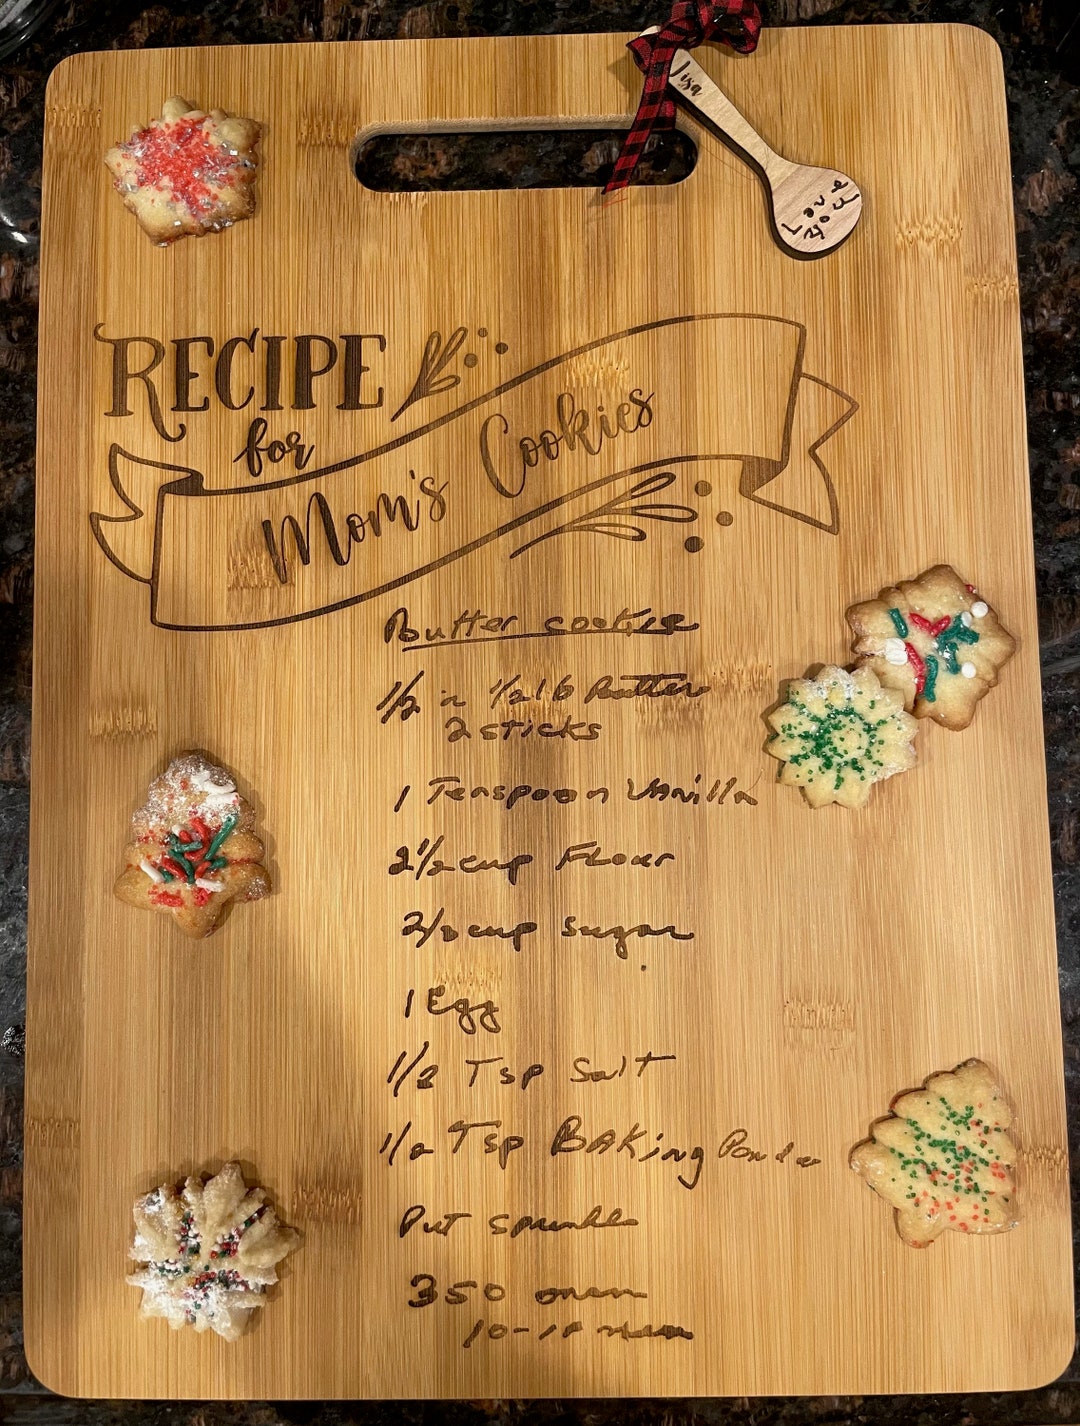 Lisa
Love
you
RECIPE
for
Mom's Cookies
Butter cookie
1/2 1/2 lb Butter
2 sticks
1 Teaspoon Vanilla
2 1/2 cup Flour
cup Sugar
1 Egg
1/2 Tsp Salt
1/2 Tsp BAKing Powder
Put sprinkle
350 oven
10-